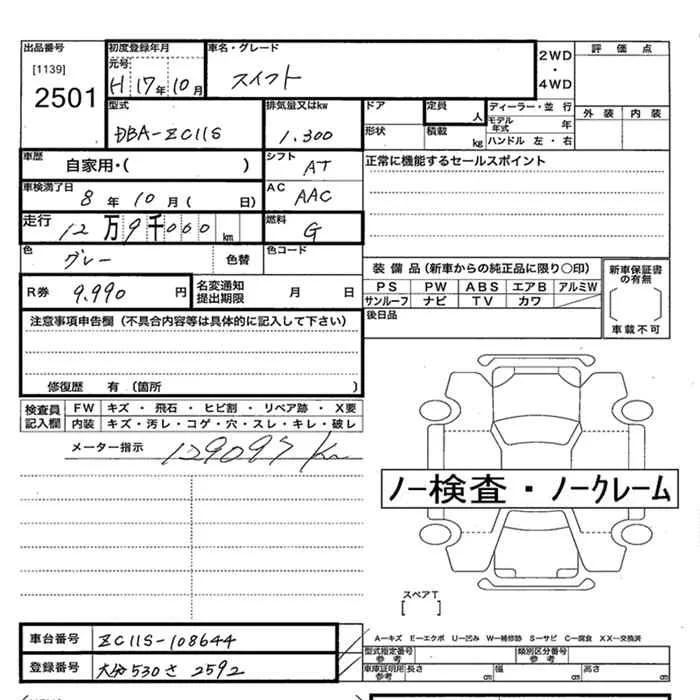 出品番号
[1139]
2501
初度登録年月
元号
H 17年 10月
車名・グレード
スイフト
2WD
・
4WD
評価点
外装 内装
型式
DBA-ZC11S
排気量又はkw
1.300
ドア
形状
定員
人
積載
kg
ディーラー・並 行
モデル年式 年
ハンドル 左・右
車歴
自家用・( )
シフト
AT
正常に機能するセールスポイント
車検満了日
8年 10月( 日)
AC
AAC
走行
12万9千000km
燃料
G
色
グレー
色替
色コード
R券 9.990 円
名変通知
提出期限 月 日
装備品(新車からの純正品に限り○印)
PS PW ABS エアB アルミW
サンルーフ ナビ TV カワ
新車保証書
の有無
車載不可
後日品
注意事項申告欄(不具合内容等は具体的に記入して下さい)
修復歴 有 (箇所 )
検査員
記入欄
FW キズ・飛石・ヒビ割・リペア跡・X要
内装 キズ・汚レ・コゲ・穴・スレ・キレ・破レ
メーター指示
ノー検査・ノークレーム
スペアT
[ ]
車台番号 ZC11S-108644
登録番号 大分 530 さ 2592
A…キズ E…エクボ U…凹み W…補修跡 S…サビ C…腐食 XX…交換済
型式指定番号
参考
類別区分番号
参考
車庫証明用
参考
長さ cm 幅 cm 高さ cm